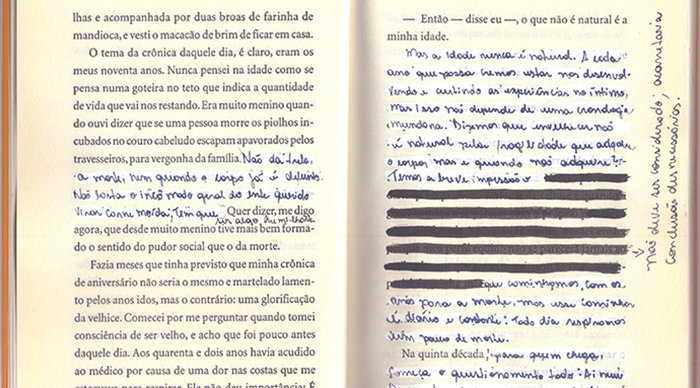 lhas e acompanhada por duas broas de farinha de
mandioca, e vesti o macacão de brim de ficar em casa.
O tema da crônica daquele dia, é claro, eram os
meus noventa anos. Nunca pensei na idade como se
pensa numa goteira no teto que indica a quantidade
de vida que vai nos restando. Era muito menino quan-
do ouvi dizer que se uma pessoa morre os piolhos in-
cubados no couro cabeludo escapam apavorados pelos
travesseiros, para vergonha da família. Não dá trela,
a morte, nem quando o corpo já é defunto.
Não basta o incômodo geral do ente querido
virar comida, tem que
ter algo humilhante
Quer dizer, me digo
agora, que desde muito menino tive mais bem forma-
do o sentido do pudor social que o da morte.
Fazia meses que tinha previsto que minha crônica
de aniversário não seria o mesmo e martelado lamen-
to pelos anos idos, mas o contrário: uma glorificação
da velhice. Comecei por me perguntar quando tomei
consciência de ser velho, e acho que foi pouco antes
daquele dia. Aos quarenta e dois anos havia acudido
ao médico por causa de uma dor nas costas que me
— Então — disse eu —, o que não é natural é a
minha idade.
Mas a idade nunca é natural. A cada
ano que passa cremos estar nos desenvol-
vendo e curtindo as experiências no íntimo,
mas isso não depende de uma cronologia
mundana. Dizemos que envelhecer não
é natural pela fragilidade que adquire
o corpo, mas e quando não adquire?!
Temos a breve impressão
que caminhamos com os
anos para a morte, mas esse caminho
é diário e constante! Todo dia respiramos
um pouco de morte.
Na quinta década, para quem chega,
começa o questionamento todo: Ai meu
Não deve ser considerado; acarretaria
conclusão desnecessárias.